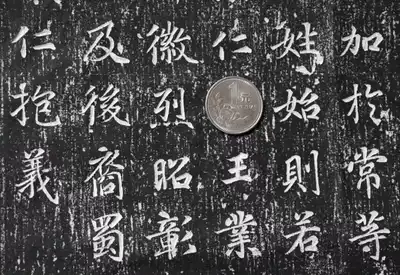 加於常等
姓始則若
仁王業
徽烈昭彰
及後裔蜀
仁抱義
1